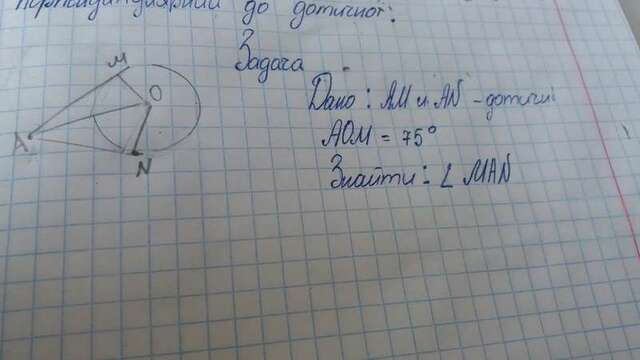 перпендикулярний до дотичної:
Задача
Дано: AM и AN - дотичні
AOM = 75°
Знайти: ∠ MAN
M
O
A
N